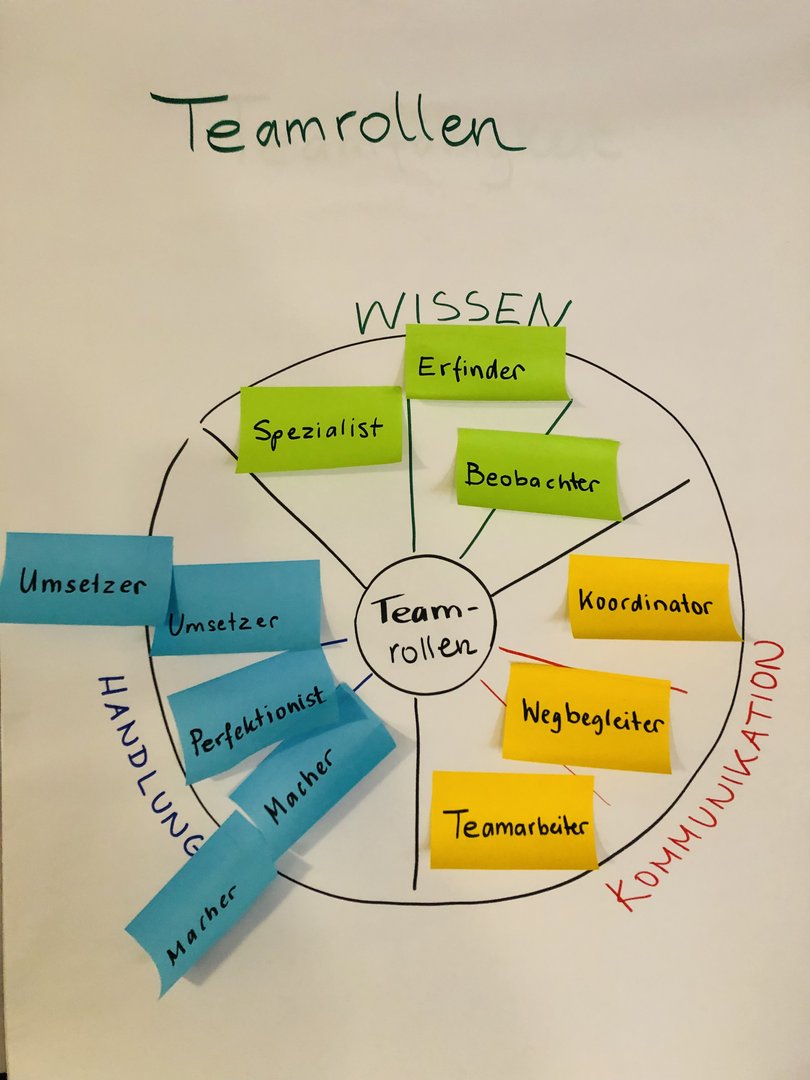 Teamrollen
WISSEN
Erfinder
Spezialist
Beobachter
Umsetzer
Umsetzer
Koordinator
Team-
rollen
Perfektionist
Wegbegleiter
Macher
Teamarbeiter
Macher
HANDLUNG
KOMMUNIKATION